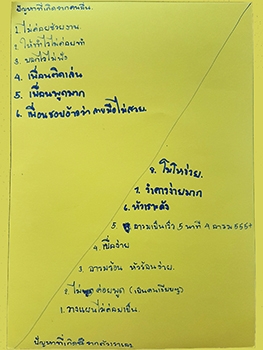 ปัญหาที่เกิดจากคนอื่น.
1. ไม่ค่อยช่วยงาน.
2. ให้ทำไรไม่ค่อยทำ
3. บอกไรไม่ฟัง
4. เพื่อนติดเล่น
5. เพื่อนพูดมาก
6. เพื่อนชอบอ้างว่า ลายมือไม่สวย.
8. โมโหง่าย.
7. รำคาญง่ายมาก
6. หัวเราะดัง
5. ลามมเป็นเร็ว 5 นาที 4 อารมม 555+
4. เบื่อง่าย
3. อารมร้อน หัวร้อนง่าย.
2. ไม่ ค่อยพูด (เป็นคนเงียบๆ)
1. วางแผนไม่ค่อยเป็น.
ปัญหาที่เกิด จากตัวเราเอง